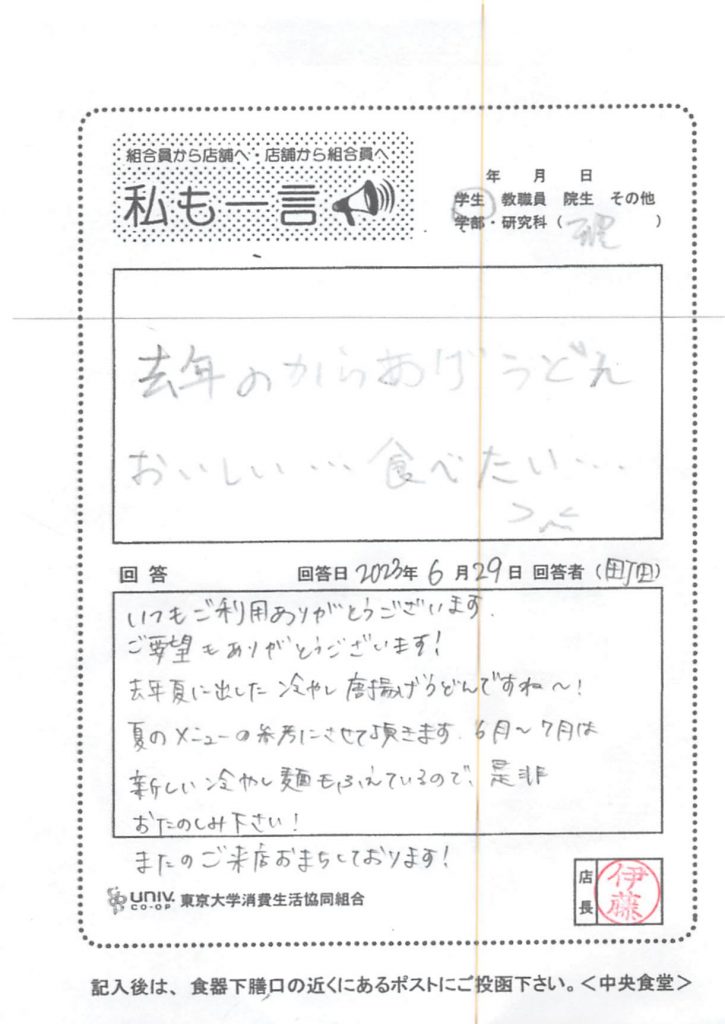 組合員から店舗へ・店舗から組合員へ
私も一言
年 月 日
学生 教職員 院生 その他
学部・研究科（理）
去年のからあげうどん
おいしい…食べたい…
回答 回答日 2023年 6月29日 回答者（町田）
いつもご利用ありがとうございます.
ご要望もありがとうございます!
去年夏に出した冷やし唐揚げうどんですね〜!
夏のメニューの参考にさせて頂きます. 6月〜7月は
新しい冷やし麺もふえているので、是非
おたのしみ下さい!
またのご来店おまちしております!
UNIV. CO-OP 東京大学消費生活協同組合
店長 伊藤
記入後は、食器下膳口の近くにあるポストにご投函下さい。＜中央食堂＞